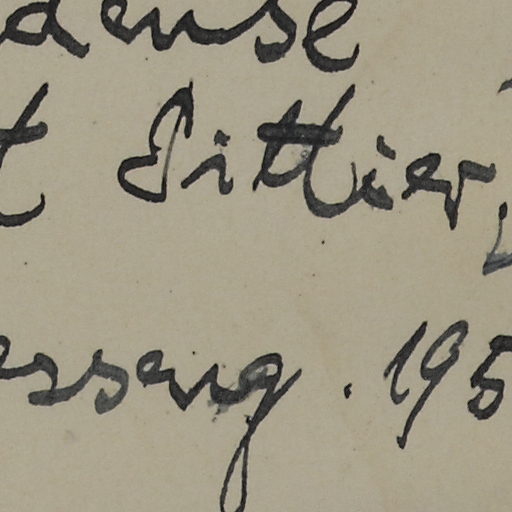 dense
t Pittier,
esseng. 195